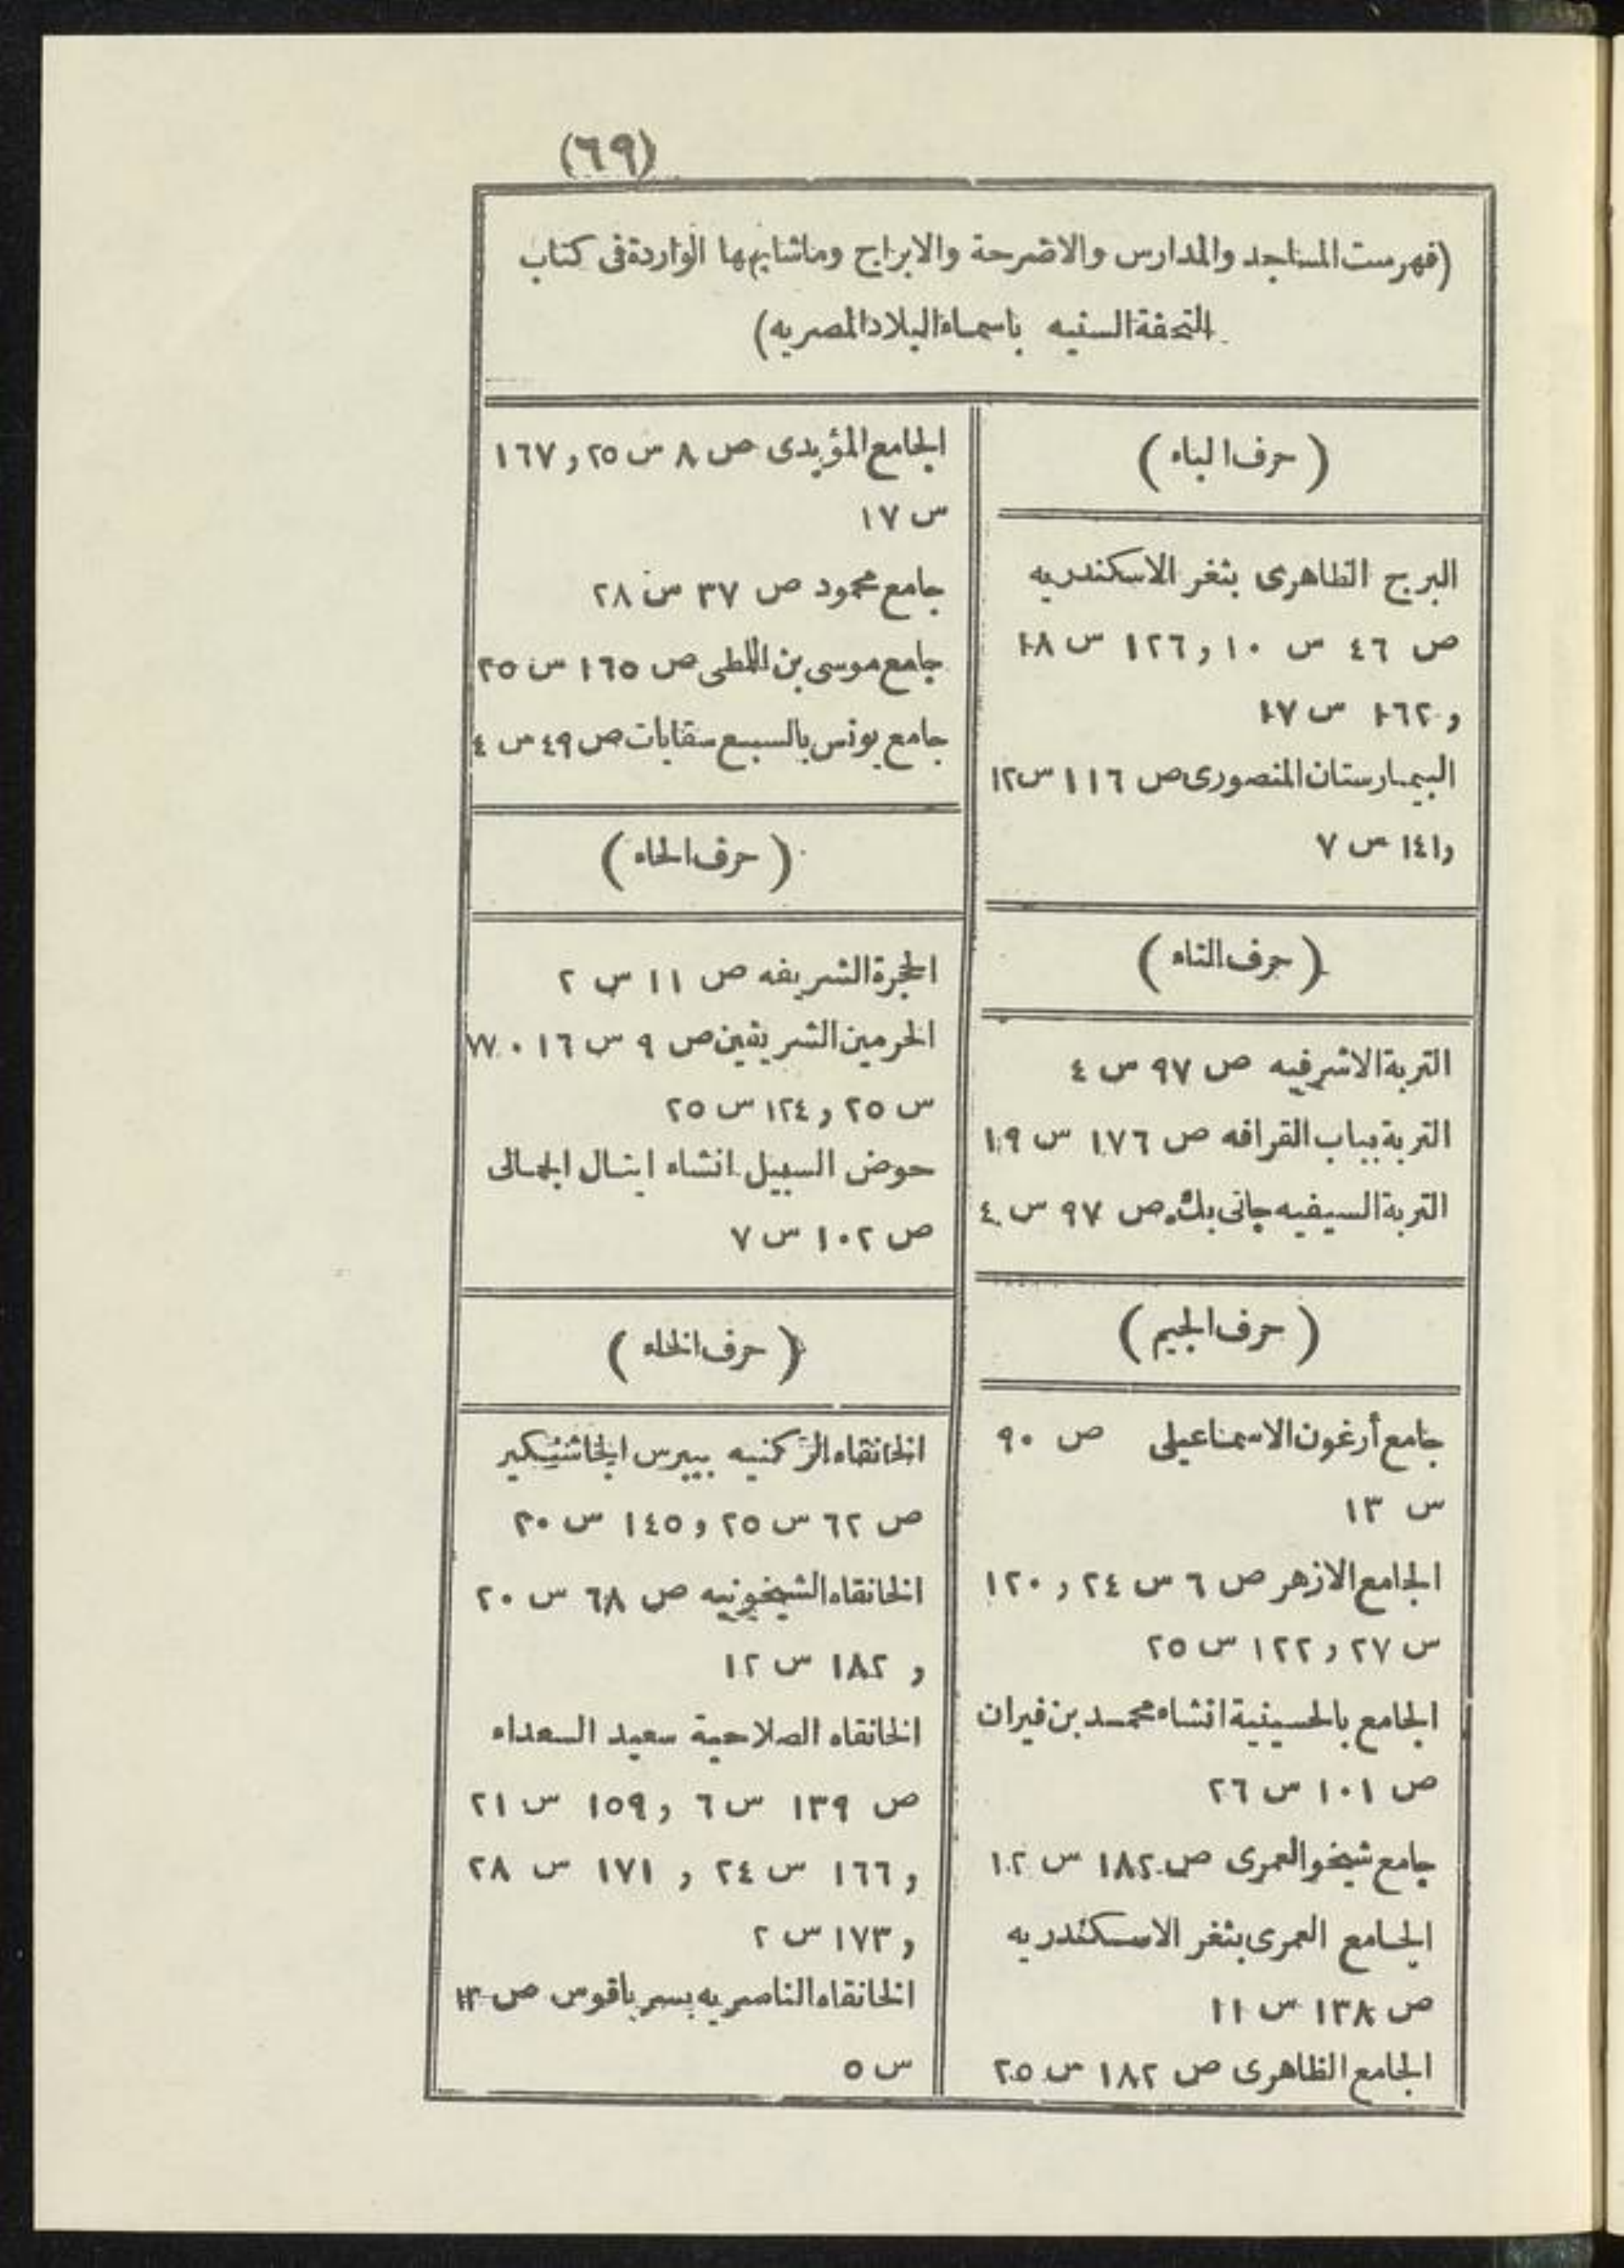 (٦٩)
(فهرست المساجد والمدارس والاضرحة والابراج وماشابهها الواردة فى كتاب
التحفة السنيه باسماء البلاد المصريه)
(حرف الباء)
البرج الظاهرى بثغر الاسكندريه
ص ٤٦ س ١٠ و ١٢٦ س ١٨
و ١٦٢ س ١٧
البيمارستان المنصورى ص ١١٦ س ١٢
و ١٤١ س ٧
(حرف التاء)
التربة الاشرفيه ص ٩٧ س ٤
التربة بباب القرافه ص ١٧٦ س ١٩
التربة السيفيه جانى بك ص ٩٧ س ٤
(حرف الجيم)
جامع أرغون الاسماعيلى ص ٩٠
س ١٣
الجامع الازهر ص ٦ س ٢٤ و ١٢٠
س ٢٧ و ١٢٢ س ٢٥
الجامع بالحسينية انشاء محمد بن فيران
ص ١٠١ س ٢٦
جامع شيخو العمرى ص ١٨٢ س ١٢
الجامع العمرى بثغر الاسكندريه
ص ١٣٨ س ١١
الجامع الظاهرى ص ١٨٢ س ٢٥
الجامع المؤيدى ص ٨ س ٢٥ و ١٦٧
س ١٧
جامع محمود ص ٣٧ س ٢٨
جامع موسى بن اللطى ص ١٦٥ س ٢٥
جامع يونس بالسبع سقايات ص ٤٩ س ٤
(حرف الحاء)
الحجرة الشريفه ص ١١ س ٢
الحرمين الشريفين ص ٩ س ١٦ ٠ ٧٧
س ٢٥ و ١٢٤ س ٢٥
حوض السبيل انشاء اينال الجمالى
ص ١٠٢ س ٧
(حرف الخاء)
الخانقاه الركنيه بيبرس الجاشنيكير
ص ٦٢ س ٢٥ و ١٤٥ س ٣٠
الخانقاه الشيخونيه ص ٦٨ س ٢٠
و ١٨٢ س ١٢
الخانقاه الصلاحية سعيد السعداء
ص ١٣٩ س ٦ و ١٥٩ س ٢١
و ١٦٦ س ٢٤ و ١٧١ س ٢٨
و ١٧٣ س ٢
الخانقاه الناصريه بسرياقوس ص
س ٥